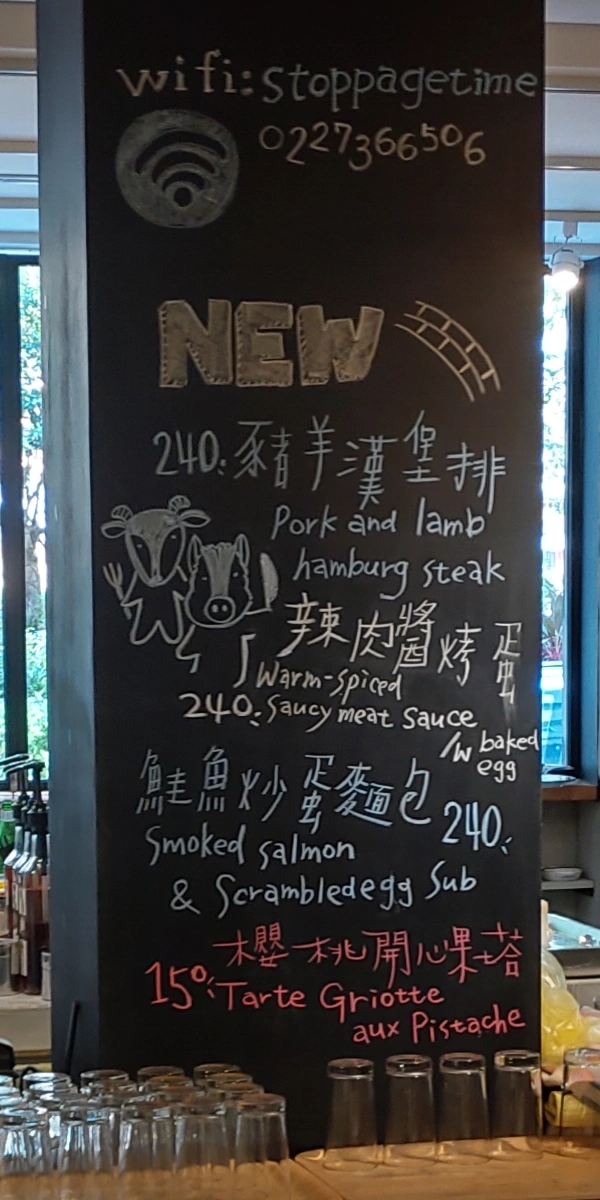 wifi: stoppagetime
0227366506
NEW
240. 豬羊漢堡排
Pork and lamb
hamburg steak
辣肉醬烤蛋
Warm-spiced
240. Saucy meat sauce
/w baked
egg
鮭魚炒蛋麵包
240.
Smoked salmon
& Scrambledegg Sub
櫻桃開心果塔
150. Tarte Griotte
aux Pistache